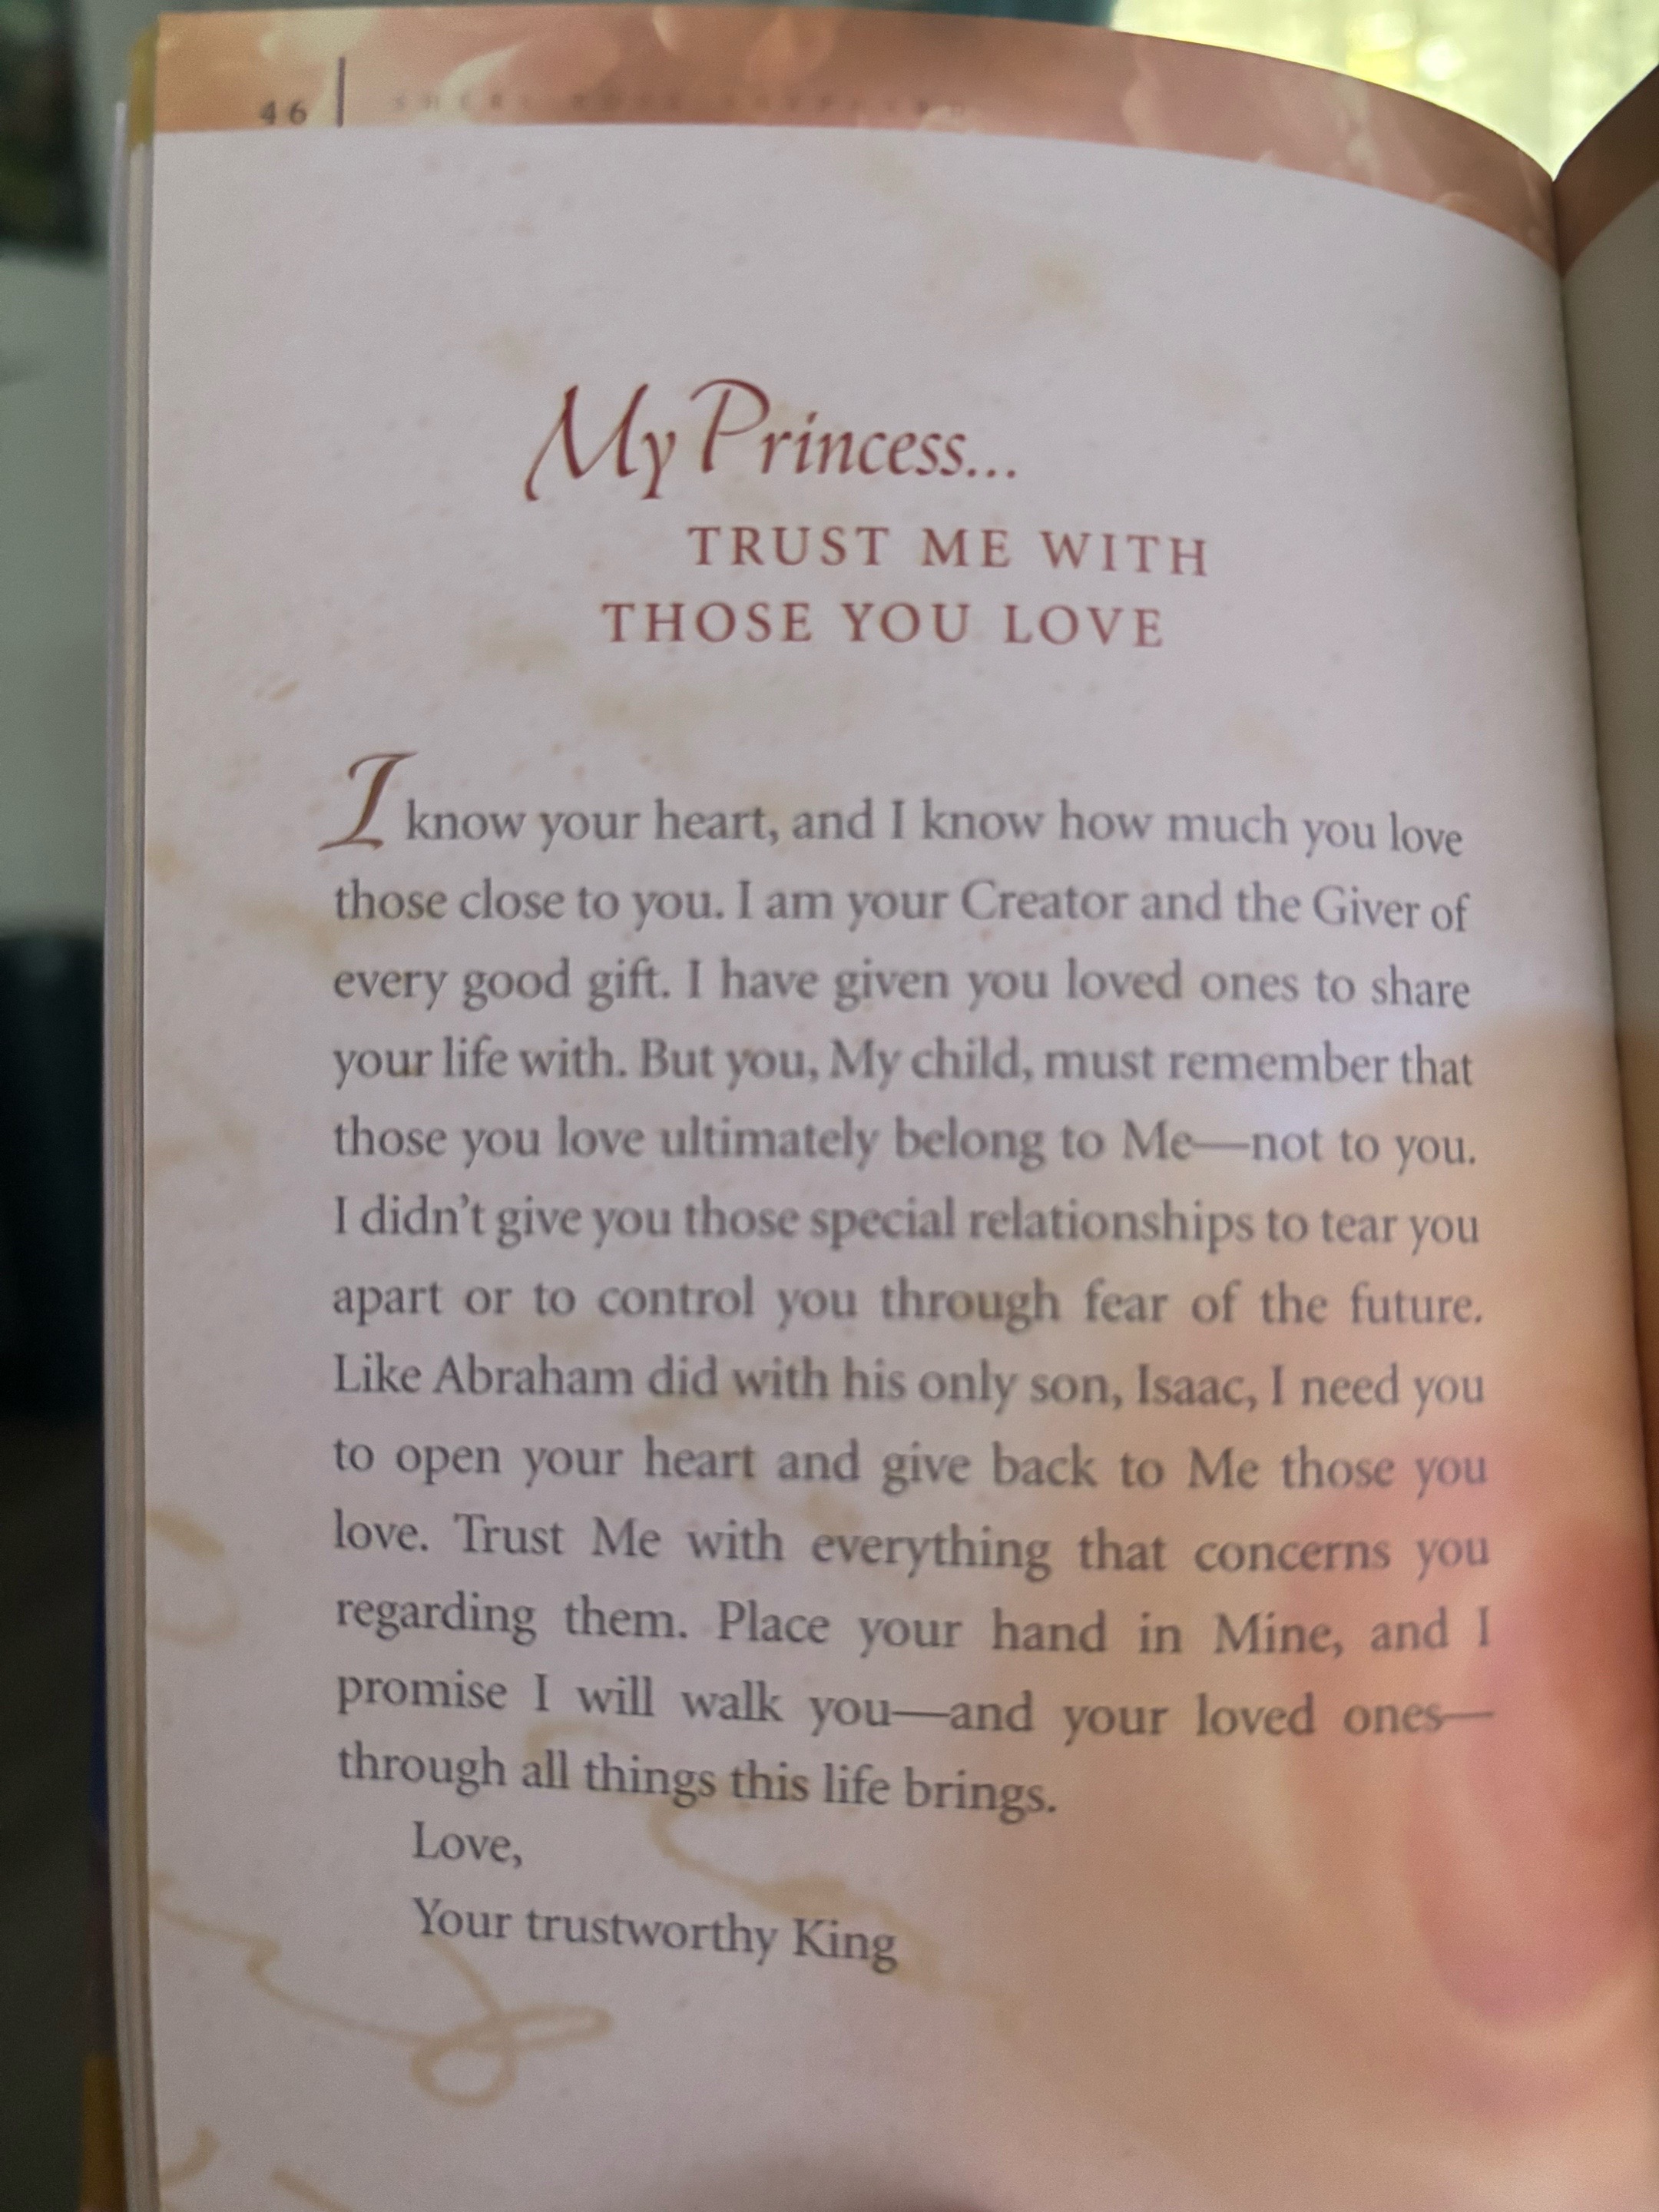 46
My Princess...
TRUST ME WITH
THOSE YOU LOVE
I know your heart, and I know how much you love
those close to you. I am your Creator and the Giver of
every good gift. I have given you loved ones to share
your life with. But you, My child, must remember that
those you love ultimately belong to Me—not to you.
I didn't give you those special relationships to tear you
apart or to control you through fear of the future.
Like Abraham did with his only son, Isaac, I need you
to open your heart and give back to Me those you
love. Trust Me with everything that concerns you
regarding them. Place your hand in Mine, and I
promise I will walk you—and your loved ones—
through all things this life brings.
Love,
Your trustworthy King